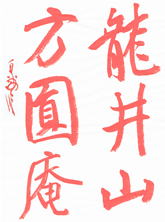 龍井山
方圓庵